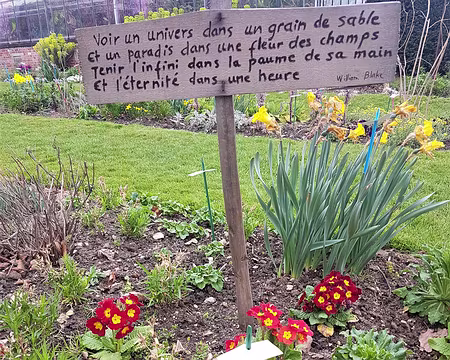 Voir un univers dans un grain de sable
et un paradis dans une fleur des champs
Tenir l'infini dans la paume de sa main
et l'éternité dans une heure
William Blake